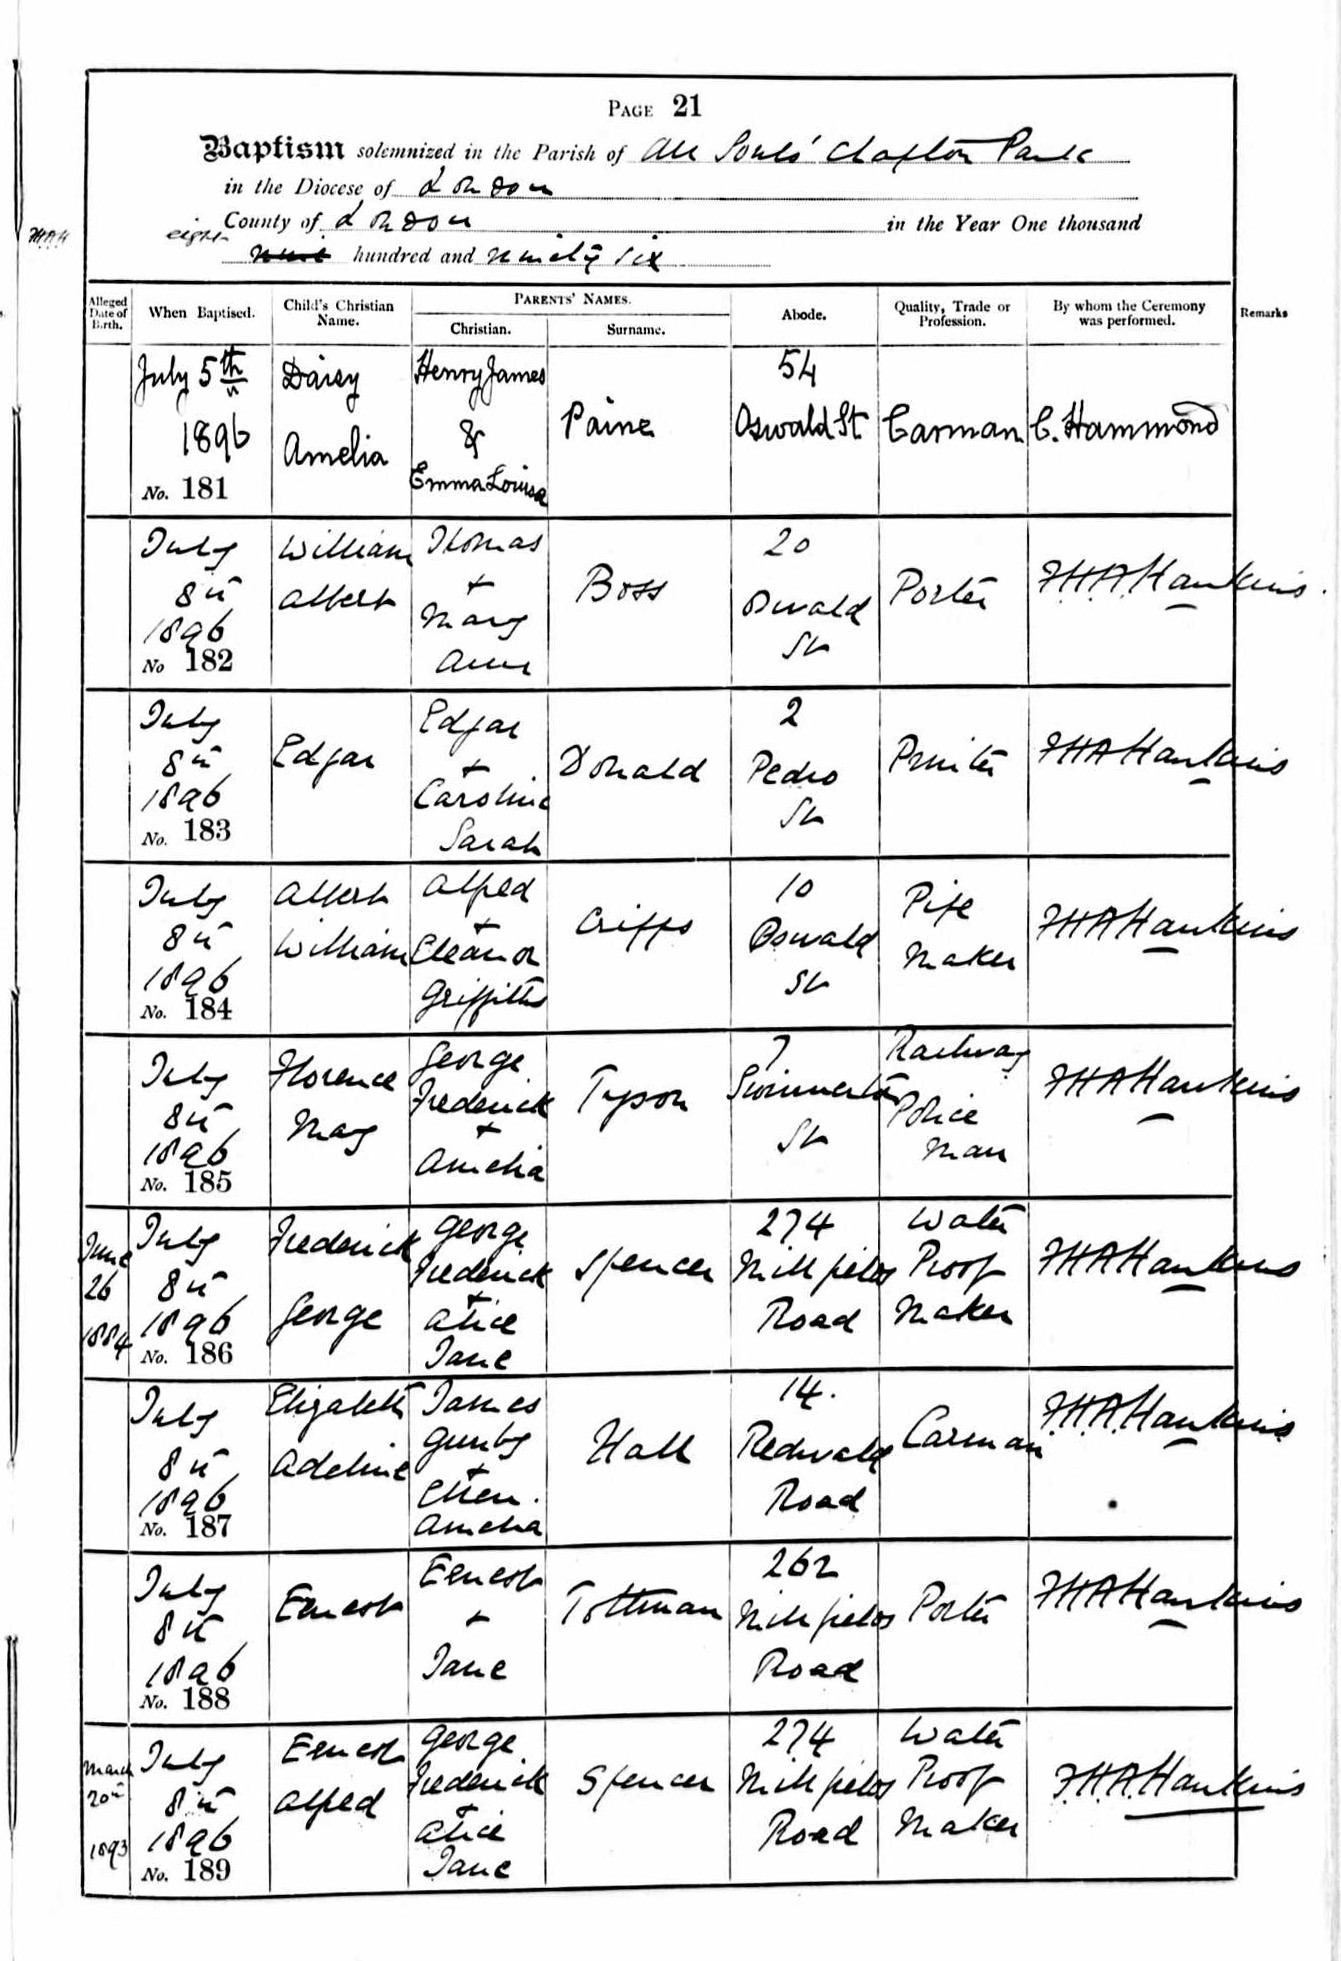 PAGE 21
Baptism solemnized in the Parish of All Souls' Clapton Park
in the Diocese of London
County of London in the Year One thousand
eight
nine hundred and ninety six
Alleged Date of Birth.
When Baptised.
Child's Christian Name.
PARENTS' NAMES.
Christian.
Surname.
Abode.
Quality, Trade or Profession.
By whom the Ceremony was performed.
Remarks
July 5th 1896 No. 181
Daisy Amelia
Henry James & Emma Louisa
Paine
54 Oswald St
Carman
C. Hammond
July 8th 1896 No 182
William Albert
Thomas + Mary Ann
Boss
20 Oswald St
Porter
F.H.A. Hawkins.
July 8th 1896 No. 183
Edgar
Edgar + Caroline Sarah
Donald
2 Pedro St
Printer
FHA Hawkins
July 8th 1896 No. 184
Albert William
Alfred + Eleanor Griffiths
Cripps
10 Oswald St
Pipe Maker
FHA Hawkins
July 8th 1896 No. 185
Florence May
George Frederick + Amelia
Tyson
7 St
Railway Police Man
FHA Hawkins
June 26 1884
July 8th 1896 No. 186
Frederick George
George Frederick + Alice Jane
Spencer
274 Millfields Road
Water Proof Maker
FHA Hawkins
July 8th 1896 No. 187
Elizabeth Adeline
James Gunby + Ellen. Amelia
Hall
14. Redwald Road
Carman
F.H.A. Hawkins
July 8th 1896 No. 188
Ernest
Ernest + Jane
Tottman
262 Millfields Road
Porter
FHA Hawkins
March 20th 1893
July 8th 1896 No. 189
Ernest Alfred
George Frederick + Alice Jane
Spencer
274 Millfields Road
Water Proof Maker
F.H.A. Hawkins